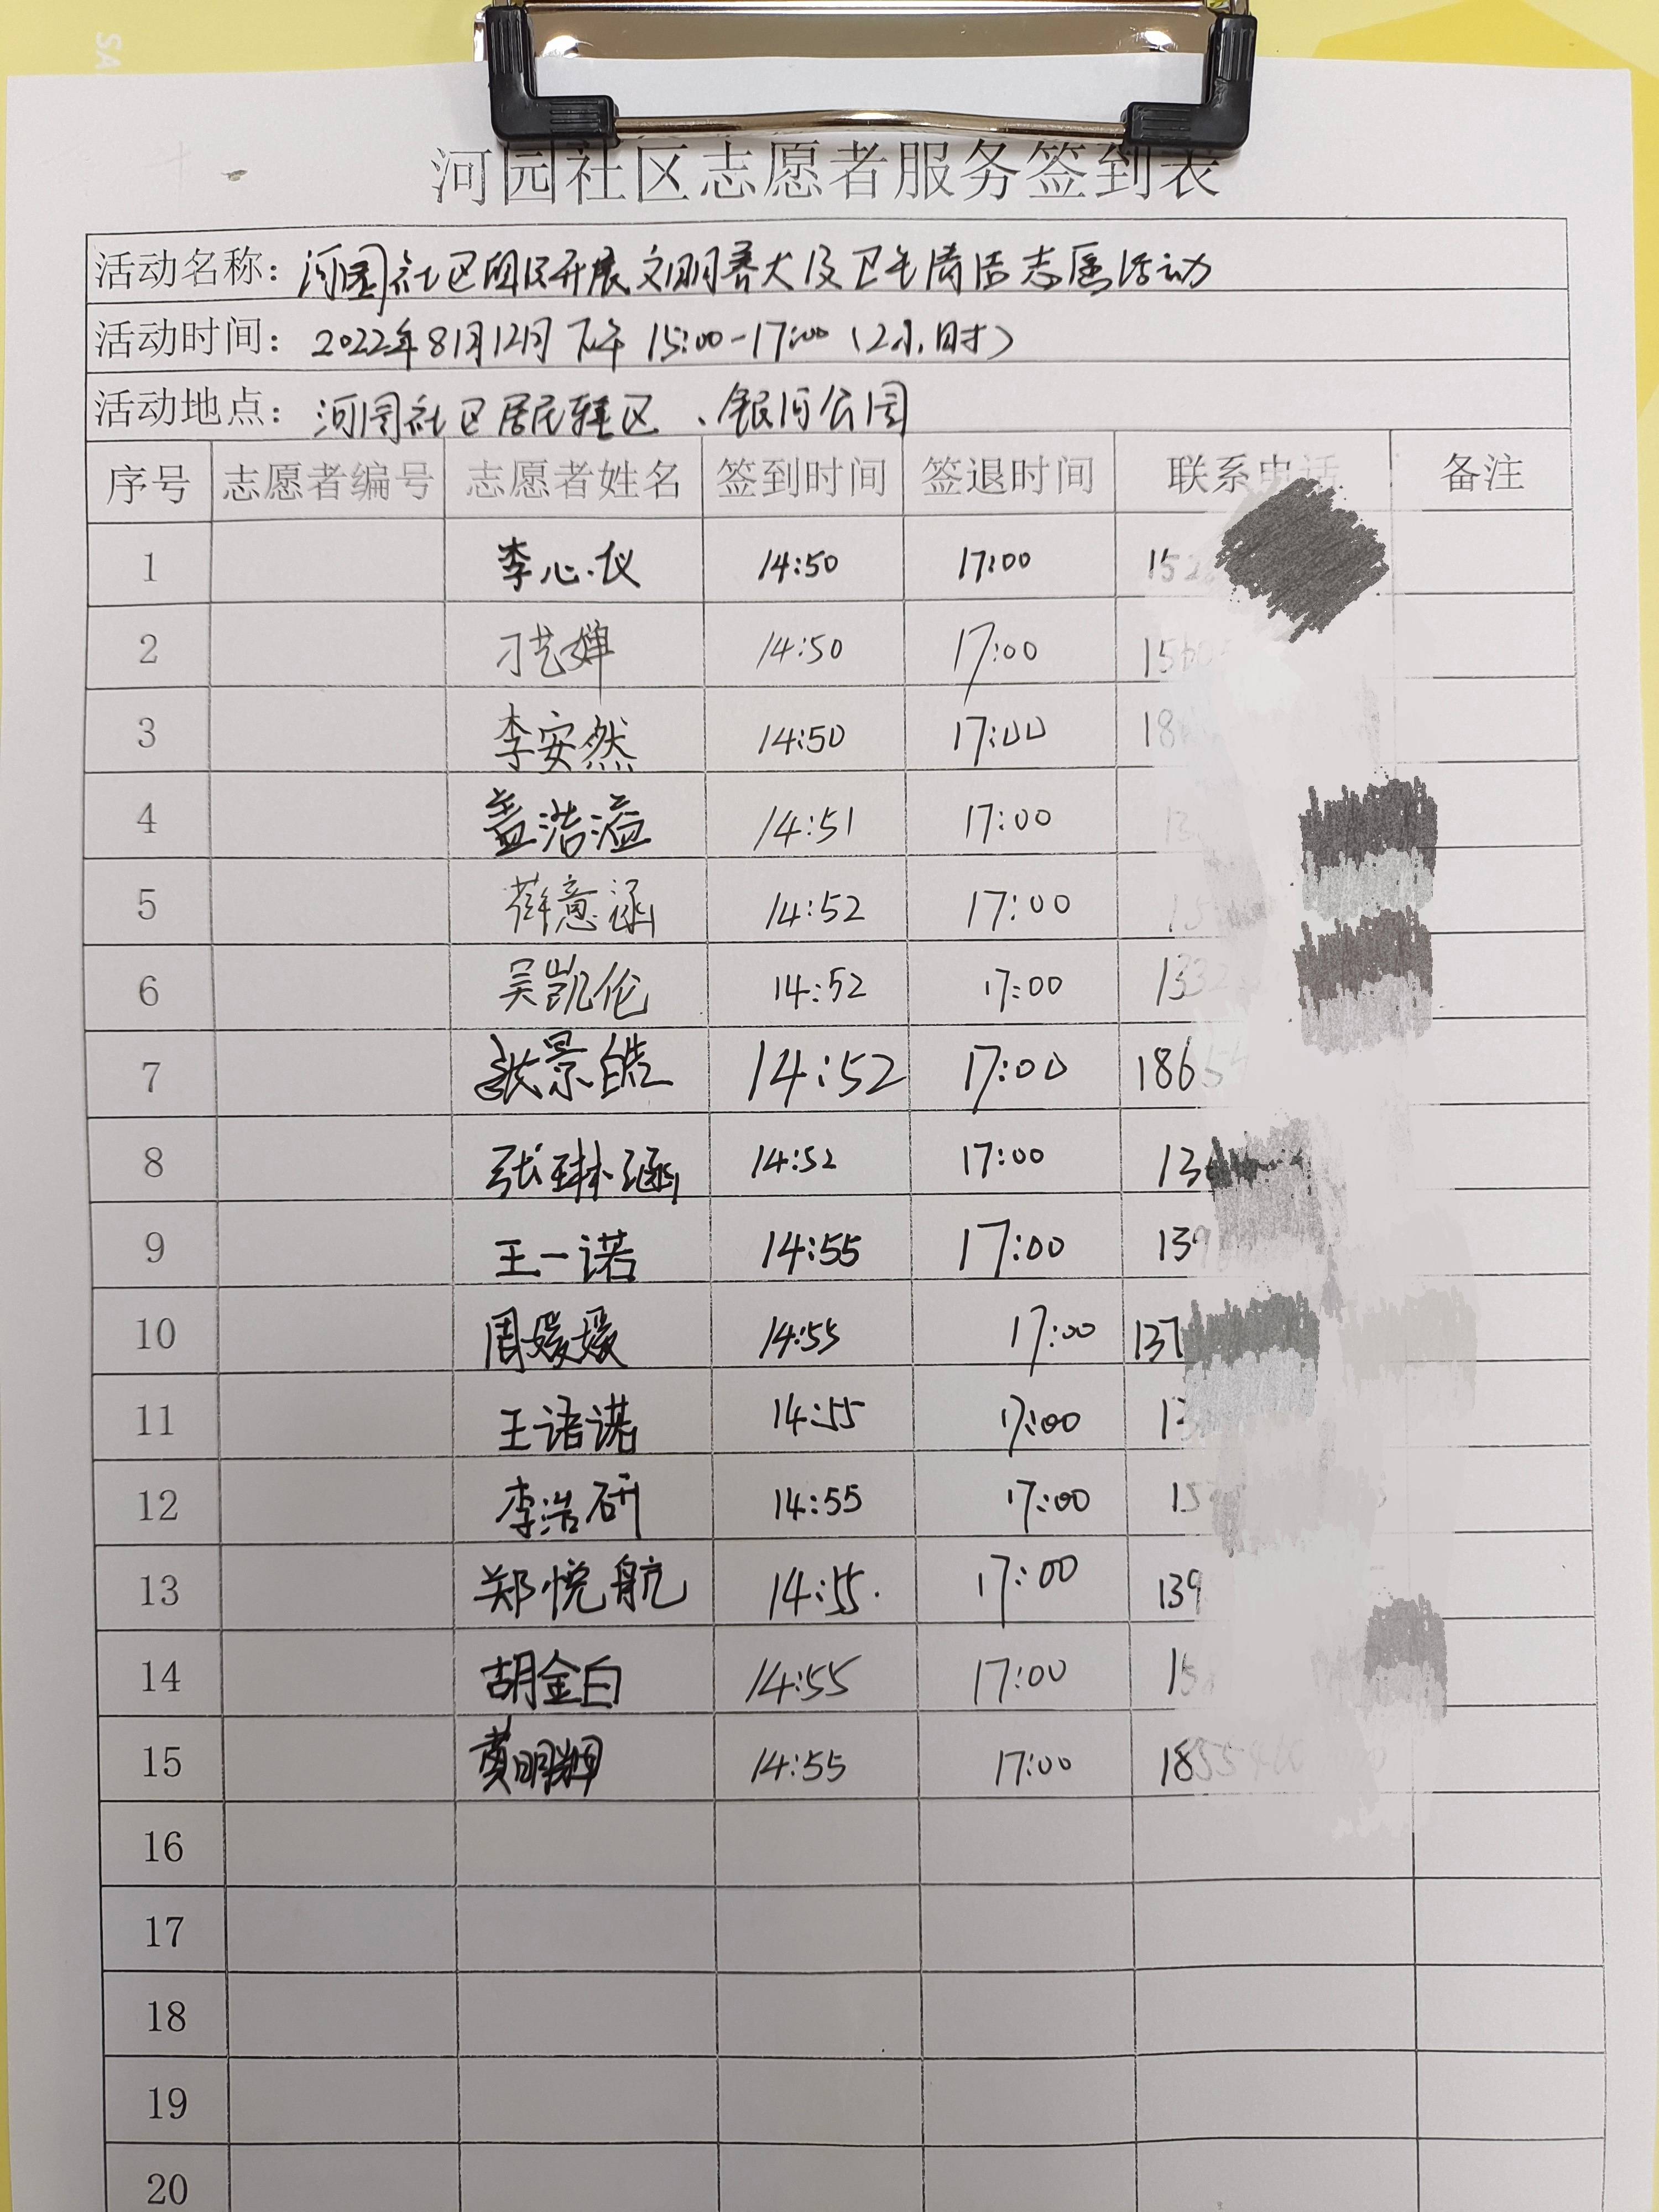 SA
河园社区志愿者服务签到表
活动名称：河园社区团区开展文明养犬及卫生清洁志愿活动
活动时间：2022年8月12日下午 15:00-17:00（2小时）
活动地点：河园社区居民辖区、银河公园
序号 志愿者编号 志愿者姓名 签到时间 签退时间 联系电话 备注
1 李心仪 14:50 17:00 152
2 刁艺婵 14:50 17:00 150
3 李安然 14:50 17:00 18
4 盖浩溢 14:51 17:00 13
5 薛意涵 14:52 17:00 15
6 吴凯伦 14:52 17:00 133
7 张景皓 14:52 17:00 186
8 张琳涵 14:52 17:00 13
9 王一诺 14:55 17:00 139
10 周媛媛 14:55 17:00 137
11 王诺诺 14:55 17:00 13
12 李浩研 14:55 17:00 15
13 郑悦航 14:55. 17:00 139
14 胡金白 14:55 17:00 15
15 黄明翔 14:55 17:00 18
16
17
18
19
20